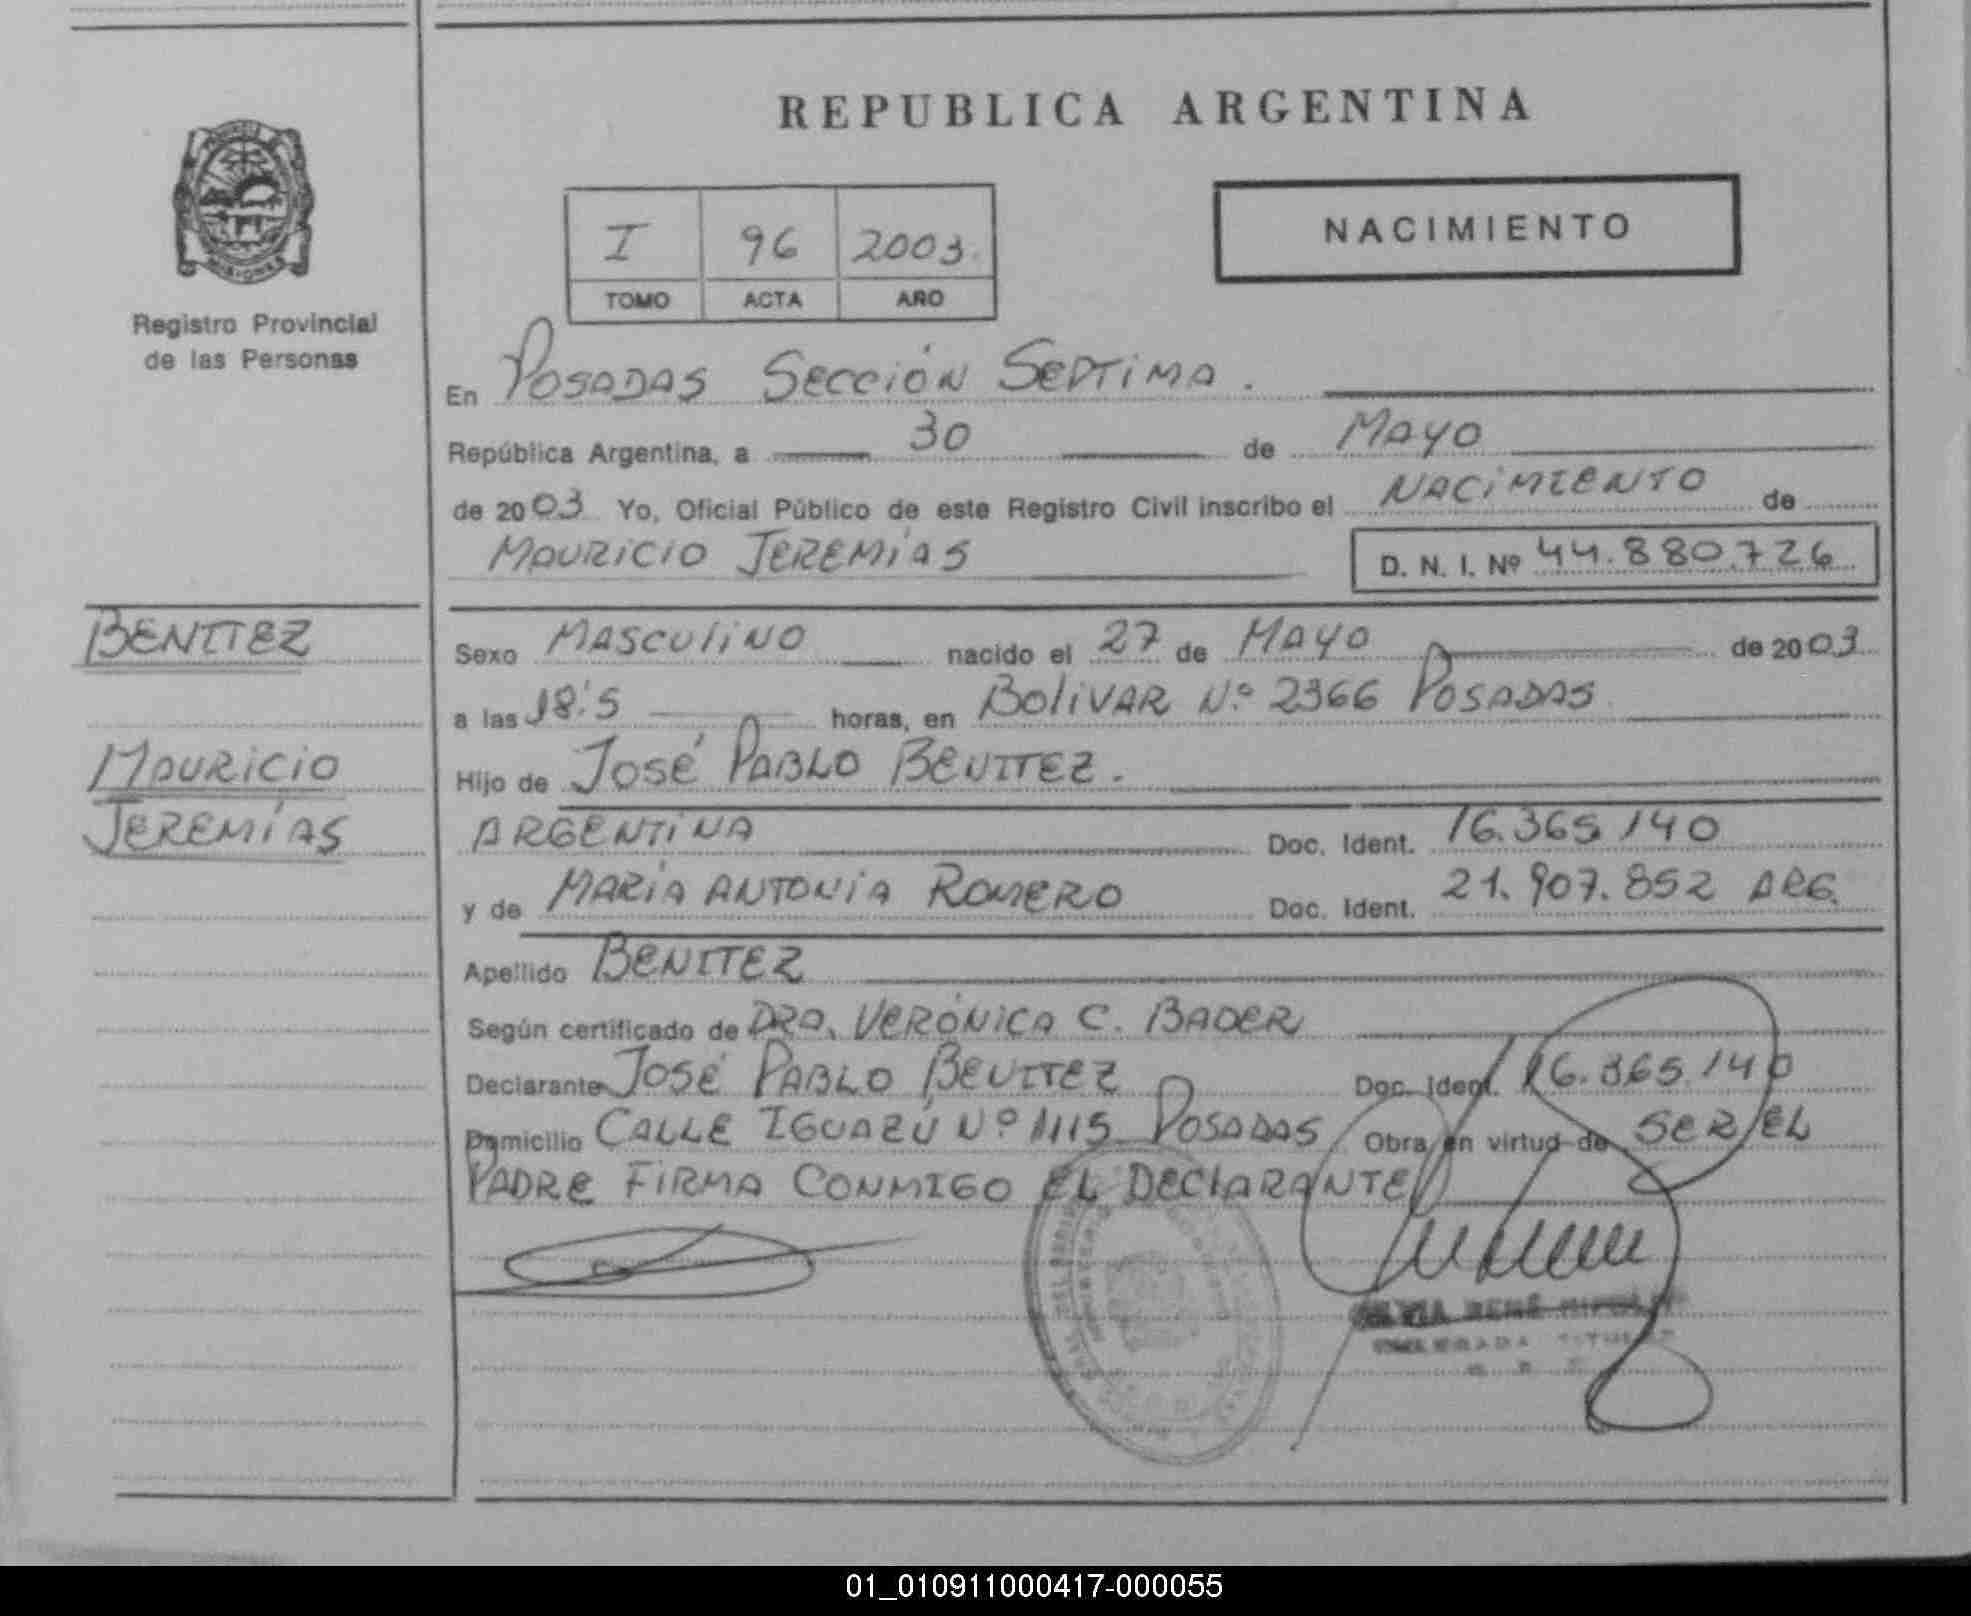 REPUBLICA ARGENTINA
NACIMIENTO
I 96 2003
TOMO ACTA AÑO
Registro Provincial
de las Personas
En POSADAS SECCIÓN SEPTIMA.
República Argentina, a 30 de MAYO
de 2003 Yo, Oficial Público de este Registro Civil inscribo el NACIMIENTO de
MAURICIO JEREMÍAS D. N. I. Nº 44.880.726
BENITEZ
MAURICIO
JEREMÍAS
Sexo MASCULINO nacido el 27 de MAYO de 2003
a las 18:5 horas, en BOLIVAR Nº 2366 POSADAS
Hijo de JOSÉ PABLO BENITEZ.
ARGENTINA Doc. Ident. 16.365.140
y de MARÍA ANTONIA ROMERO Doc. Ident. 21.907.852 ARG.
Apellido BENITEZ
Según certificado de DRA. VERÓNICA C. BADER
Declarante JOSÉ PABLO BENITEZ Doc. Ident. 16.365.140
Domicilio CALLE IGUAZÚ Nº 1115 POSADAS Obra en virtud de SER EL
PADRE FIRMA CONMIGO EL DECLARANTE
01_010911000417-000055